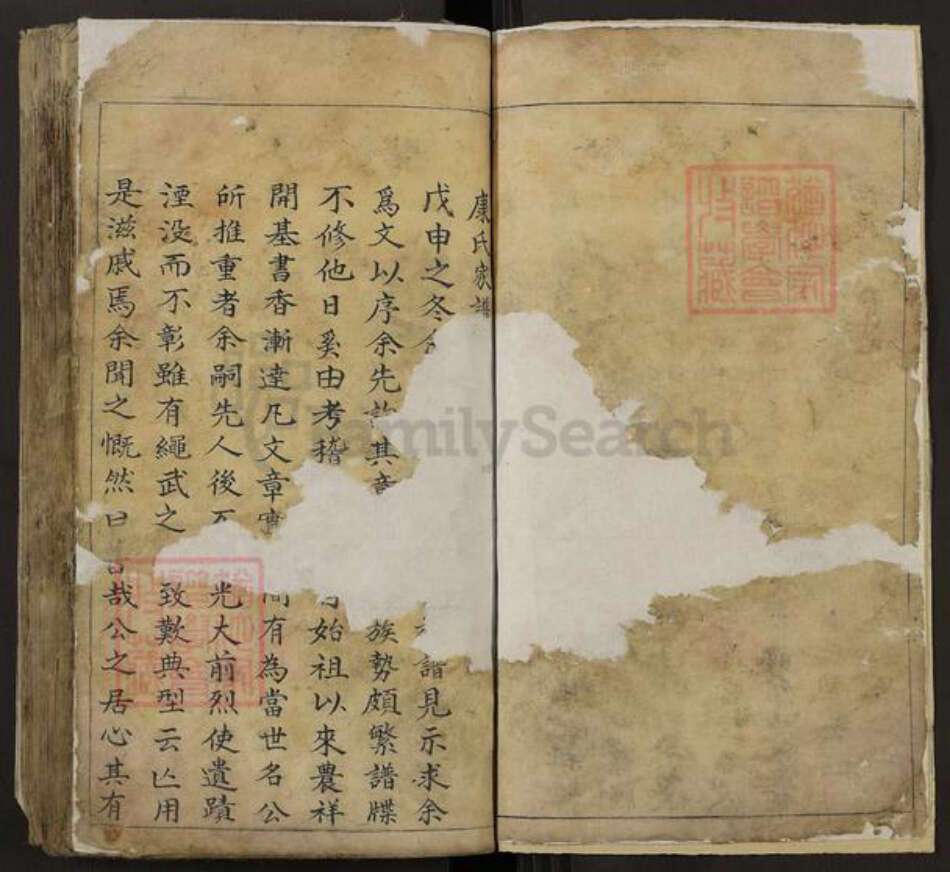 康氏家譜
戊申之冬 譜見示求余
爲文以序余先 其 族勢頗繁譜牒
不修他日奚由考稽 始祖以來農祥
開基書香漸達凡文章 有為當世名公
所推重者余嗣先人後不 光大前烈使遺蹟
湮没而不彰雖有繩武之 致歎典型云亡用
是滋戚焉余聞之慨然曰 哉公之居心其有
FamilySearch